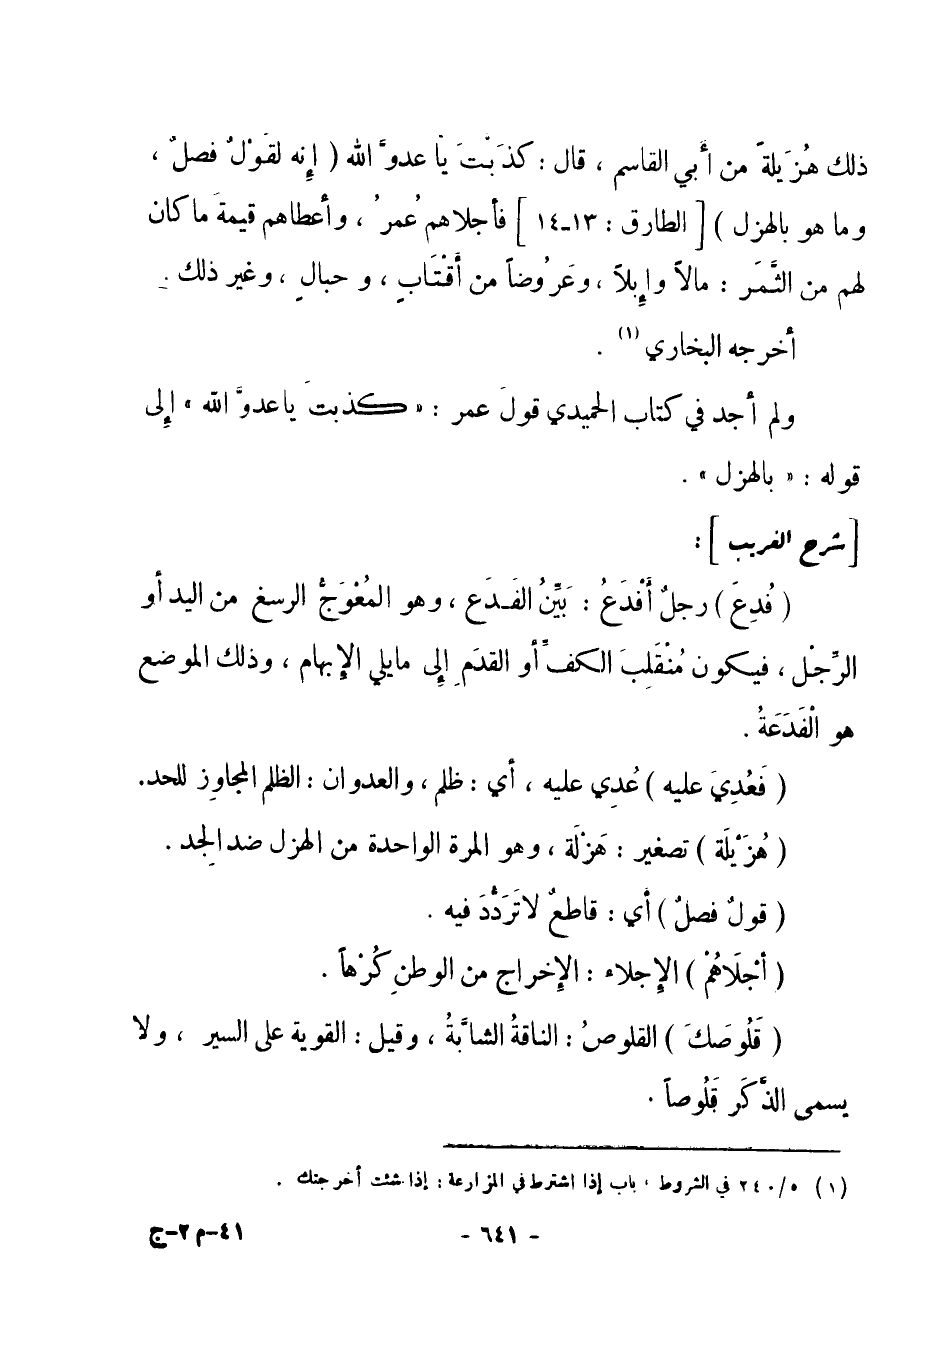 ذلك هُزَيلةً من أبي القاسم ، قال : كذَبْتَ يا عدوَّ الله ( إنه لقَوْلٌ فصلٌ ،
وما هو بالهزل ) [ الطارق : ١٣ـ١٤ ] فأجلاهم عُمرُ ، وأعطاهم قيمةَ ما كان
لهم من الثَّمَر : مالاً وإبلاً ، وعَرُوضاً من أَقْتَابٍ ، و حبالٍ ، وغير ذلك .
أخرجه البخاري (١) .
ولم أجد في كتاب الحميدي قولَ عمر : « كذبتَ يا عدوَّ الله » إلى
قوله : « بالهزل » .
[ شرح الغريب ] :
( فُدِعَ ) رجلٌ أَفْدَعُ : بَيِّنُ الفَدَع ، وهو المُعْوَجُّ الرسغ من اليد أو
الرِّجْل ، فيكون مُنْقَلِبَ الكفِّ أو القدَمِ إلى مايلي الإبهام ، وذلك الموضع
هو الْفَدَعَةُ .
( فَعُدِيَ عليه ) عُدِي عليه ، أي : ظلم ، والعدوان : الظلم المجاوِز للحد.
( هُزَيْلَة ) تصغير : هَزْلَة ، وهو المرة الواحدة من الهزل ضد الجِد .
( قولٌ فصلٌ ) أي : قاطعٌ لا تَرَدُّدَ فيه .
( أجْلَاهُمْ ) الإجلاء : الإخراج من الوطنِ كُرْهاً .
( قَلُوصَكَ ) القلوصُ : الناقةُ الشابَّةُ ، وقيل : القوية على السير ، ولا
يسمى الذَّكَر قَلُوصاً .
(١) ٢٤٠/٥ في الشروط ، باب إذا اشترط في المزارعة : إذا شئت أخرجتك .
- ٦٤١ -
٤١-م٢-ج